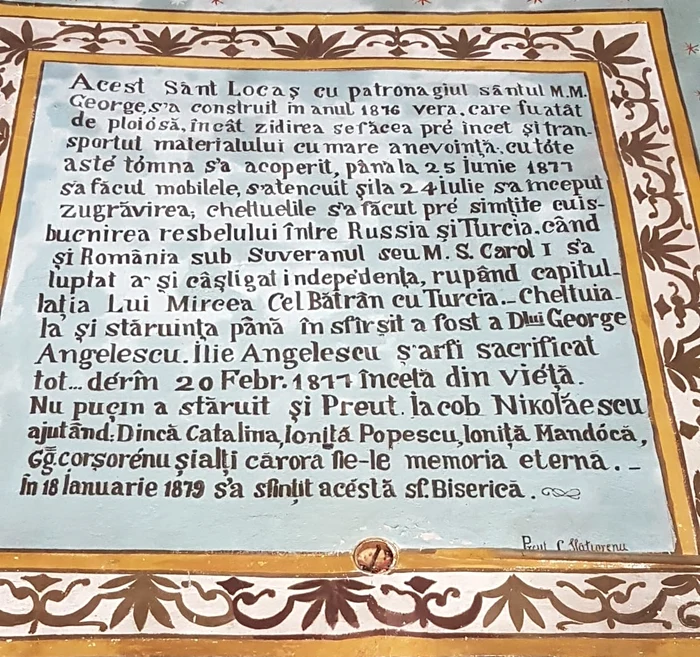 Acest Sânt Locaș cu patronagiul sântul M.M.
George, s'a construit in anul 1876 vera, care fu atât
de ploiósă, încât zidirea se făcea pré incet și tran-
sportul materialului cu mare anevoință. cu tóte
asté tómna s'a acoperit, până la 25 Iunie 1877
s'a făcul mobilele, s'a tencuit și la 24 Iulie s'a început
zugrăvirea; cheltuelile s'a făcut pré simțite cu is-
bucnirea resbelului între Russia și Turcia. când
și România sub Suveranul seu M. S. Carol I s'a
luptat a- și câșligat indepedența, rupând capitul-
lația Lui Mircea Cel Bătrân cu Turcia._ Cheltuia-
la și stăruința până în sfîrșit a fost a Dlui George
Angelescu. Ilie Angelescu ș'ar fi sacrificat
tot... dérîn 20 Febr. 1877 încetă din viétă.
Nu puçin a stăruit și Preut. Iacob Nikolăescu
ajutând: Dincă Catalina, Ioniță Popescu, Ioniță Mandócă,
Gg. corșorénu și alți cărora fie-le memoria eternă. _
În 18 Ianuarie 1879 s'a sfințit acéstă sf. Biserică.
Preut